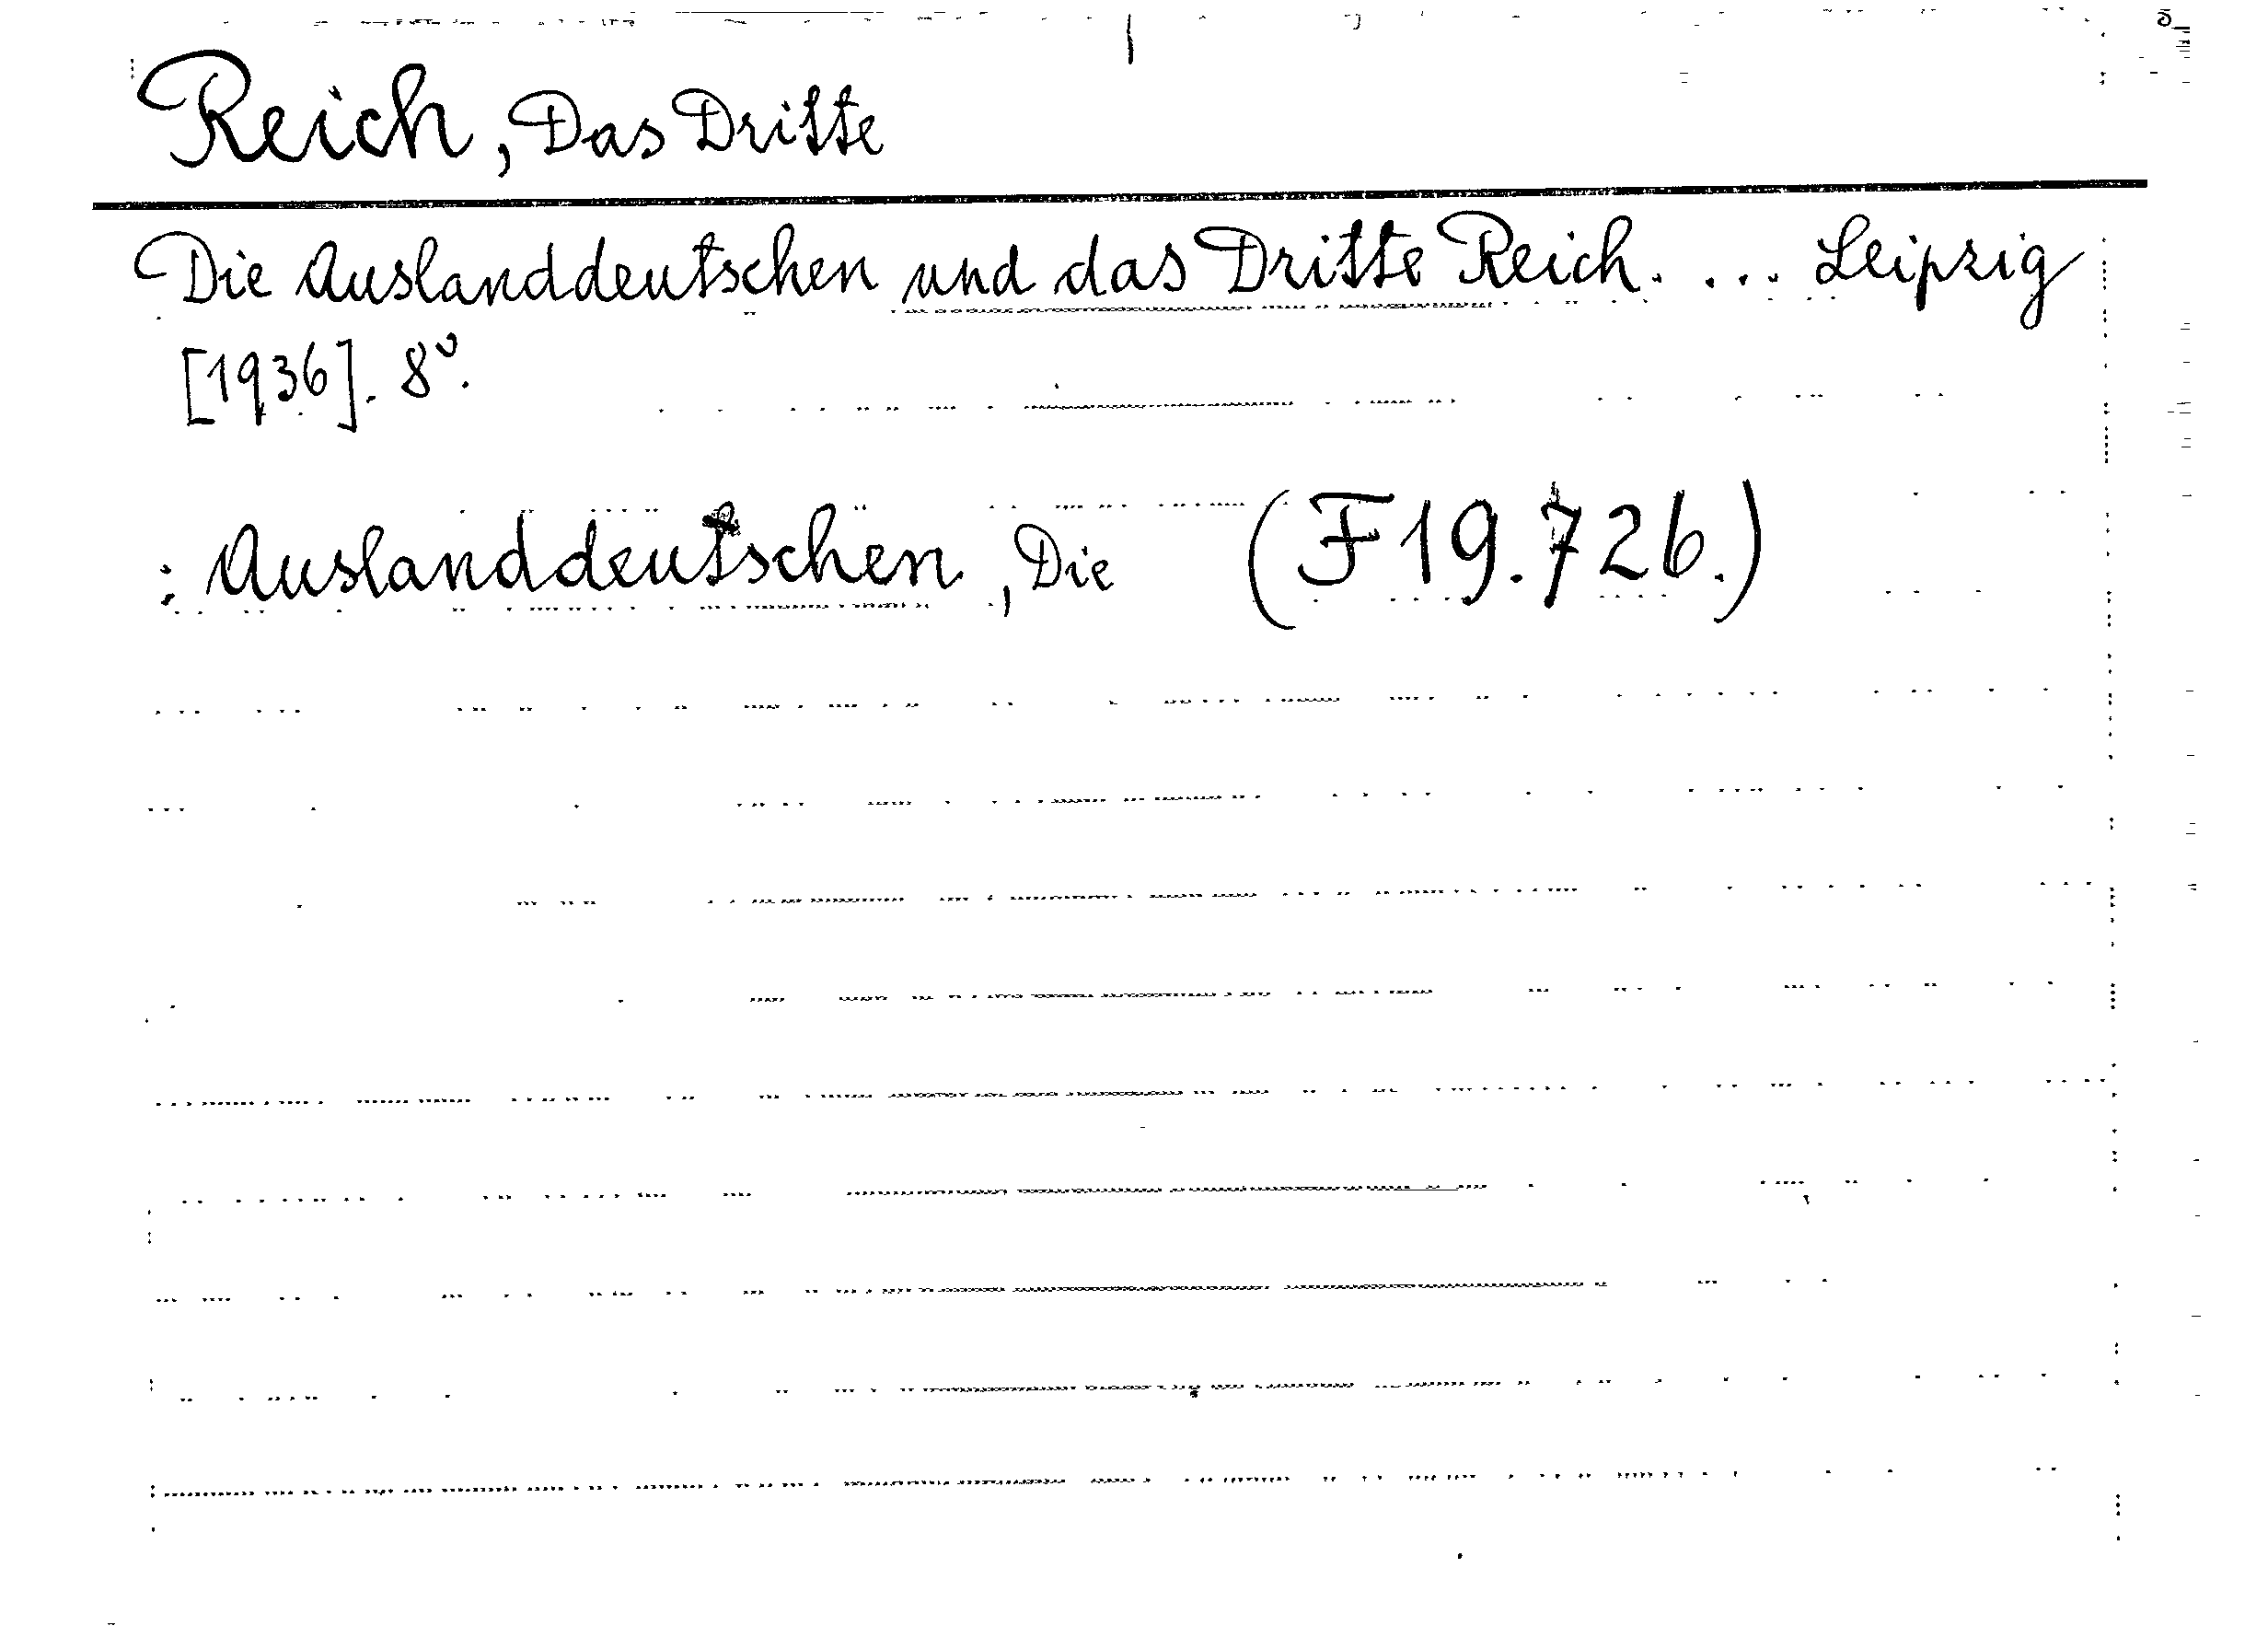 Reich, Das Dritte
Die Auslanddeutschen und das Dritte Reich. ... Leipzig
[1936]. 8°.
: Auslanddeutschen, Die (F 19.726.)